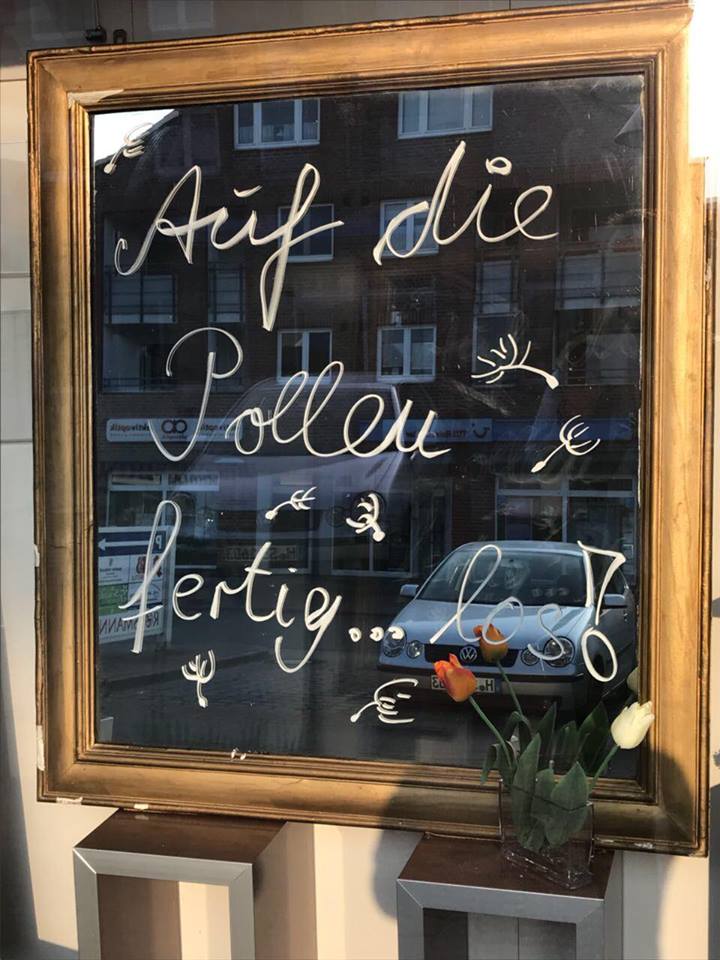 Auf die
Pollen
fertig... los!